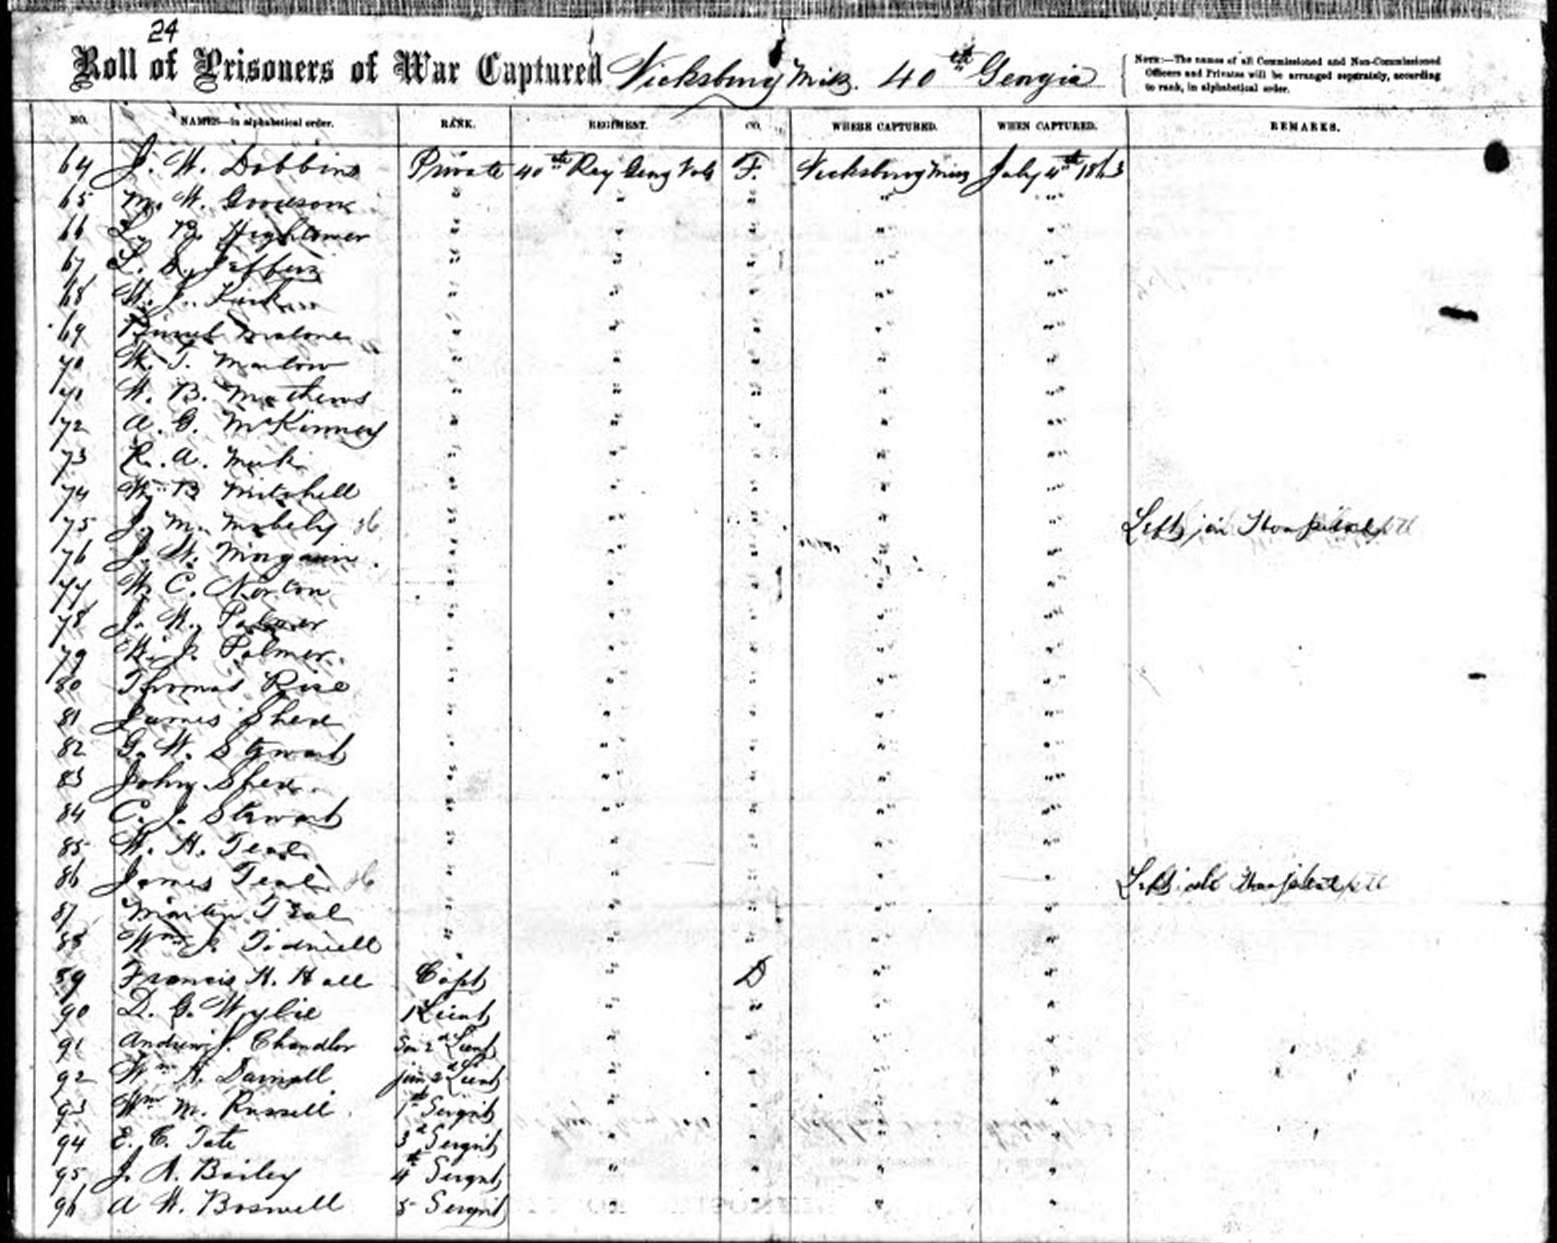 24
Roll of Prisoners of War Captured Vicksburg Miss. 40th Georgia
NOTE:—The names of all Commissioned and Non-Commissioned
Officers and Privates will be arranged separately, according
to rank, in alphabetical order.
NO. NAMES—in alphabetical order. RANK. REGIMENT. CO. WHERE CAPTURED. WHEN CAPTURED. REMARKS.
64 J. W. Dobbins Private 40th Reg Geng Vols F. Vicksburg Miss July 4th 1863
65 M. W. " " " " "
66 L. B. Hightower " " " " "
67 L. " " " " "
68 W. J. " " " " "
69 Malone " " " " "
70 W. T. Marlow " " " " "
71 W. B. Mathews " " " " "
72 A. G. McKinney " " " " "
73 R. A. " " " " "
74 W. B Mitchell " " " " "
75 J. M. Mobely " " " " " Left in
76 J. W. " " " " "
77 W. C. Norton " " " " "
78 J. W. Palmer " " " " "
79 W. J. Palmer " " " " "
80 Thomas Rice " " " " "
81 James " " " " "
82 G. W. Stewart " " " " "
83 John " " " " "
84 C. J. Stewart " " " " "
85 W. H. Teal " " " " "
86 James Teal " " " " " Left
87 Martin Teal " " " " "
88 Wm J. Tidwell " " " " "
89 Francis H. Hall Capt " D " "
90 D. G. Wylie 1 Lieut " " " "
91 Andrew J. Chandler Sen 2d Lieut " " " "
92 Wm A. Darnell jun 2d Lieut " " " "
93 Wm M. Russell 1st Sergnt " " " "
94 E. C. Tate 3d Sergnt " " " "
95 J. A. Bailey 4th Sergnt " " " "
96 A W. Boswell 5 Sergnt " " " "